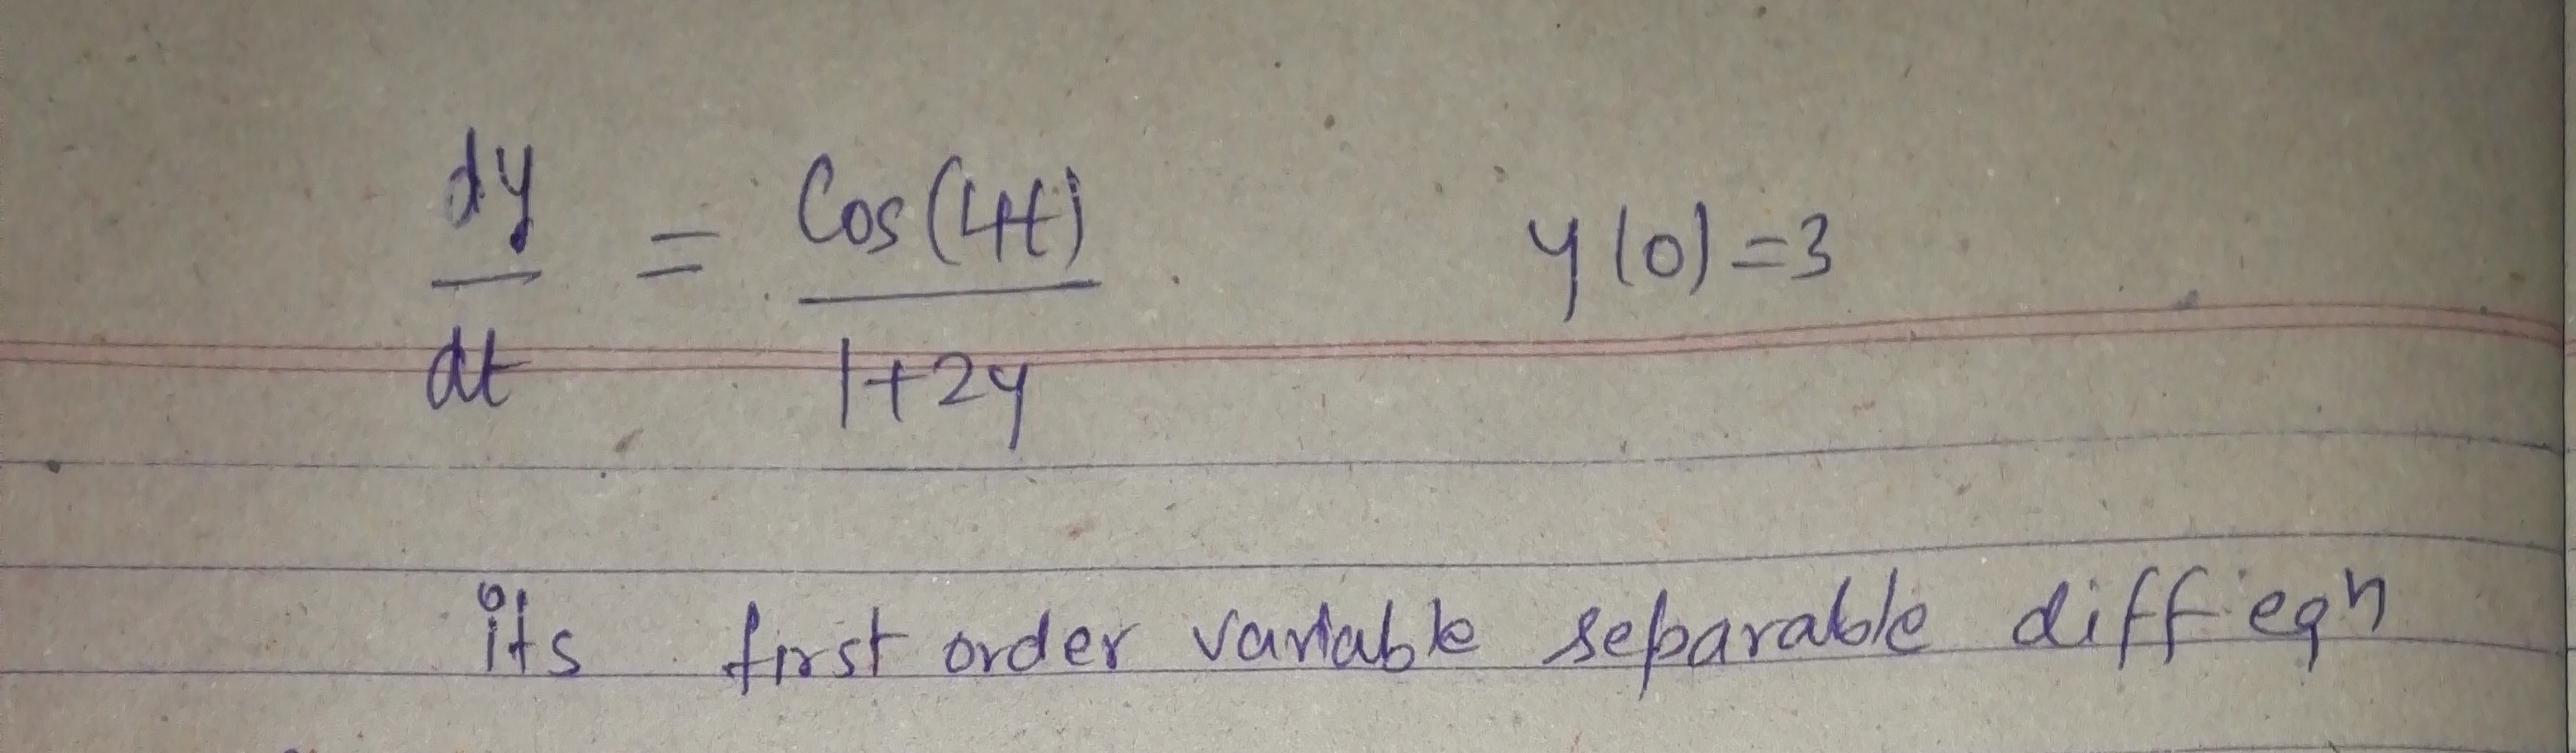 dy/dt = Cos(4t)/1+2y y(0)=3
its first order variable separable diff eqn